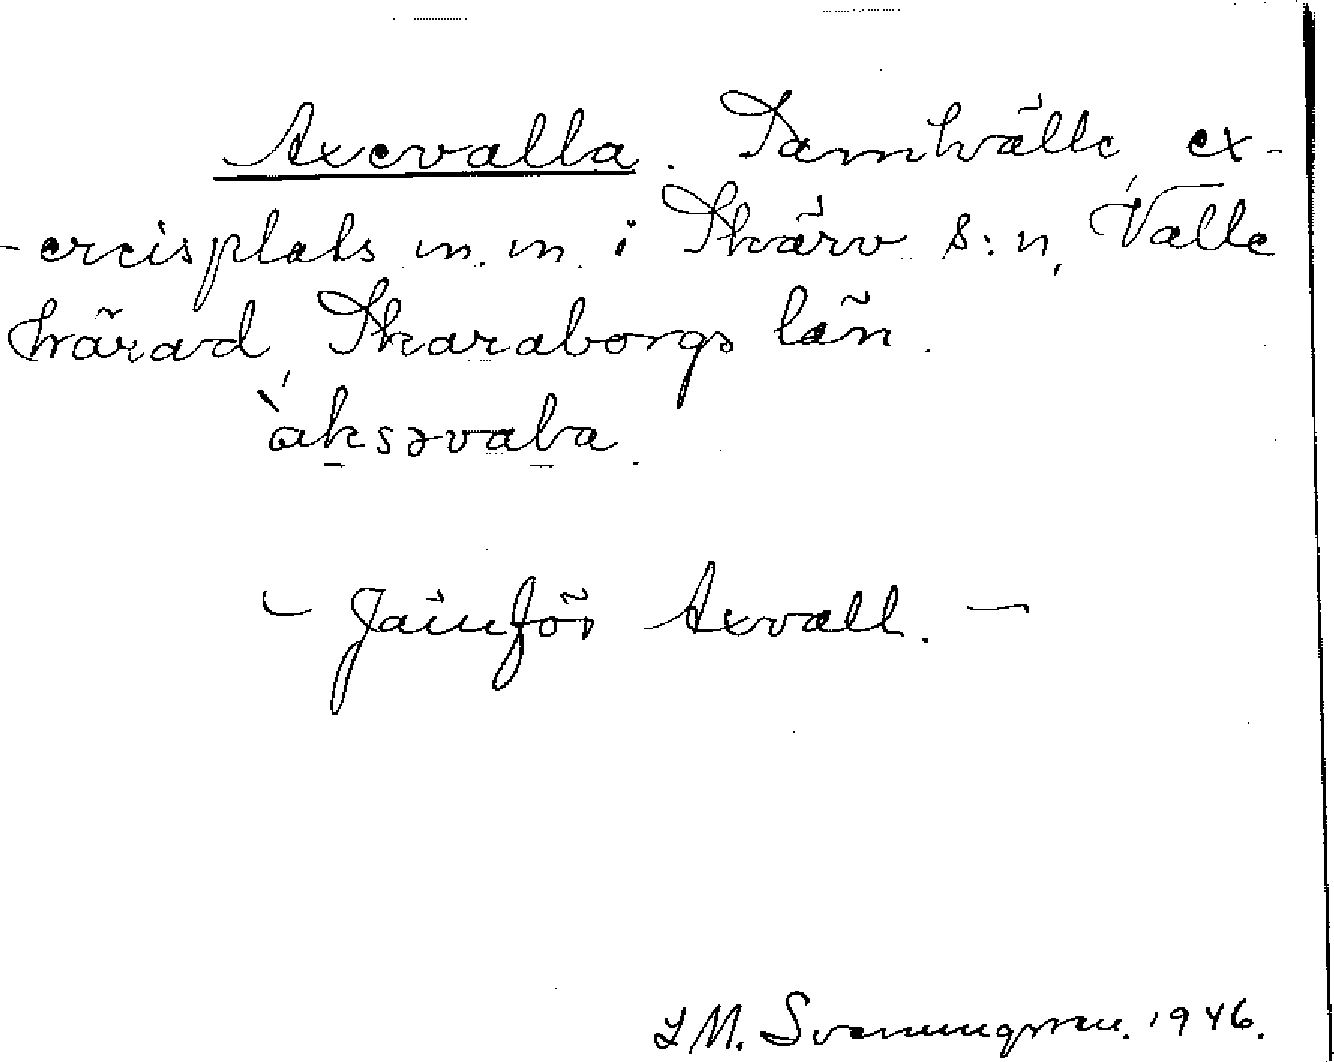 Axevalla. Samhälle, ex-
-ercisplats m.m. i Skärv s:n, Valle
härad, Skaraborgs län.
àksəvala.
- Jämför Axvall. -
L M. Svenungsson. 1946.